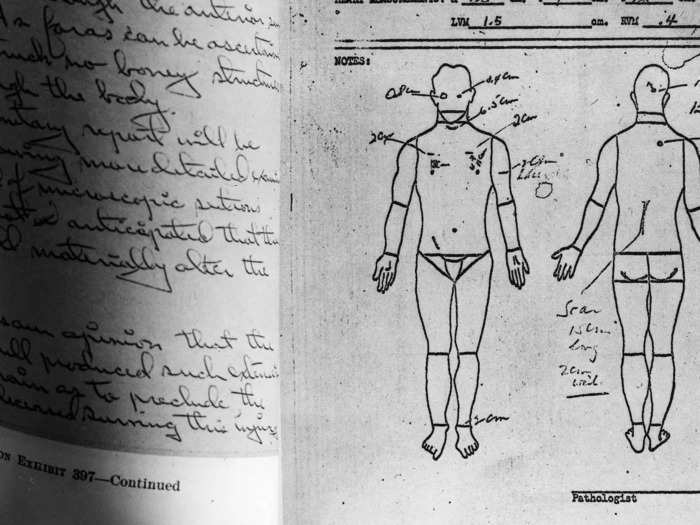 the anterior
As far as can be ascertain
no boney structu
gh the body.
ntary report will be
more detailed
of microscopic sections
is anticipated that the
d materially alter the
opinion that the
ull produced such extensi
rain as to preclude the
deceased surviving this injury
ON EXHIBIT 397—Continued
LVM 1.5 cm. RVM .4
NOTES:
6.5cm
2cm
2cm
Scar
15cm
long
2cm
wide
2cm
Pathologist